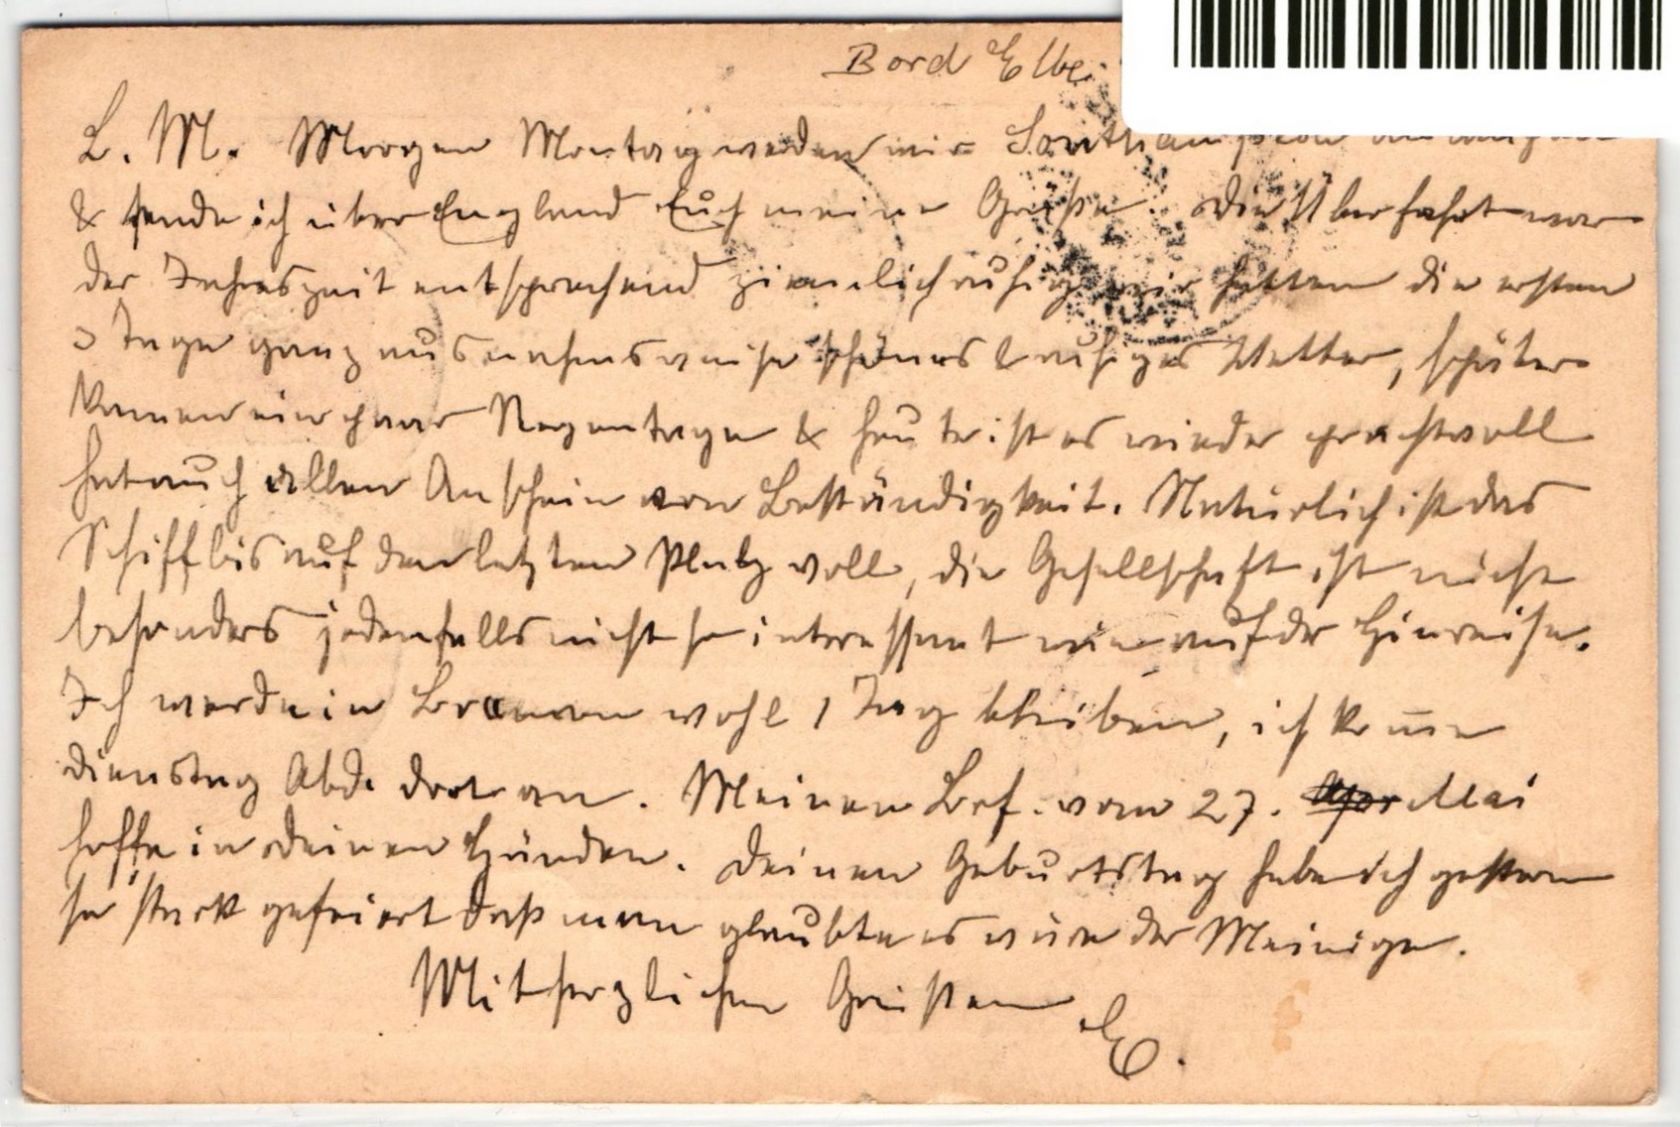 Bord Elbe
L. M. Morgen Montag werden wir Southampton anlaufen
& sende ich über England Euch meine Grüße. Die Überfahrt war
der Jahreszeit entsprechend ziemlich ruhig, wir hatten die ersten
3 Tage ganz ausnahmsweise schönes & ruhiges Wetter, später
kamen ein paar Regentage & heute ist es wieder prachtvoll
hat auch allen Anschein von Beständigkeit. Natürlich ist das
Schiff bis auf den letzten Platz voll, die Gesellschaft ist nicht
besonders jedenfalls nicht so interessant wie auf der Hinreise.
Ich werde in Bremen wohl 1 Tag bleiben, ich komme
Dienstag Abd. dort an. Meinen Brf. vom 27. Apr Mai
hoffe in Deinen Händen. Deinen Geburtstag habe ich gestern
so stark gefeiert daß man glaubte es wäre der Meinige.
Mit herzlichen Grüßen
E.